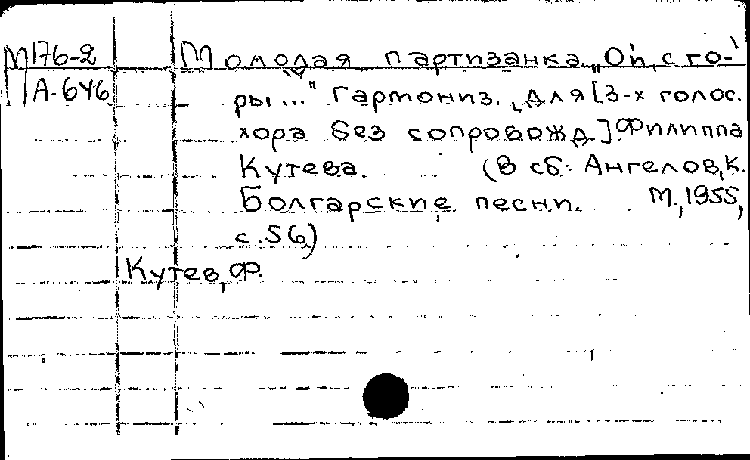 М176-2 Молодая партизанка „Ой, с го-
А-646 ры..." Гармониз. для [3-х голос.
хора без сопровожд.] Филиппа
Кутева. (В сб: Ангелов, К.
Болгарские песни. М., 1955,
с.56)
Кутев, Ф.